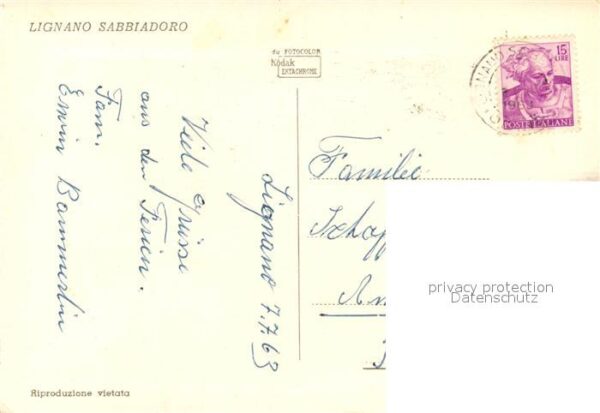 LIGNANO SABBIADORO
da FOTOCOLOR
Kodak
EKTACHROME
15
LIRE
POSTE ITALIANE
Lignano 7.7.63
Viele Grüsse
aus den Ferien.
Fam.
Erwin
Familie
privacy protection
Datenschutz
Riproduzione vietata